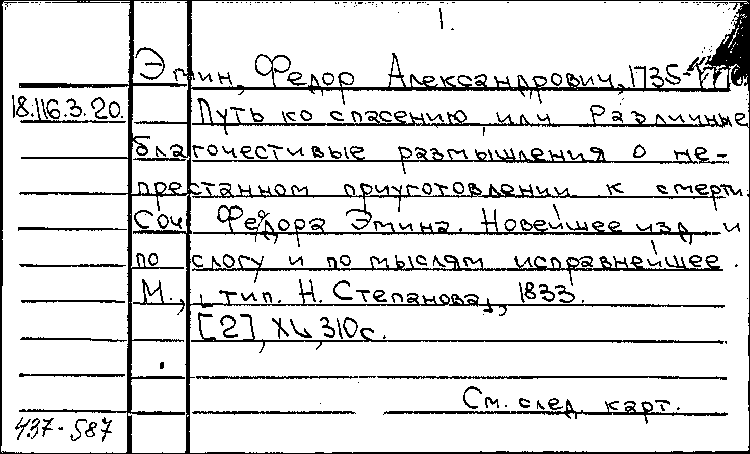 1.
Эмин, Федор Александрович, 1735-1770
18.116.3.20.
Путь ко спасению, или Различные
благочестивые размышления о не-
престанном приуготовлении к смерти.
Соч. Федора Эмина. Новейшее изд. и
по слогу и по мыслям исправнейшее.
М., [тип. Н. Степанова], 1833.
[2], XV, 310 с.
См. след. карт.
437-587